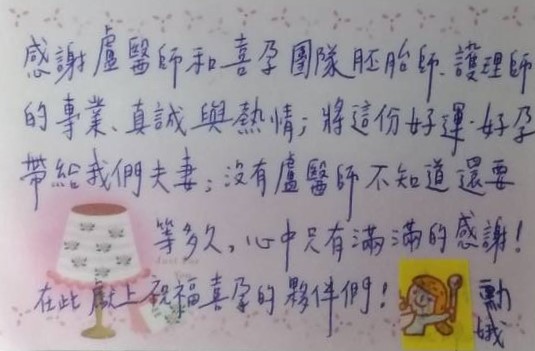 感謝盧醫師和喜孕團隊胚胎師、護理師
的專業、真誠與熱情；將這份好運、好孕
帶給我們夫妻；沒有盧醫師不知道還要
等多久，心中只有滿滿的感謝！
在此獻上祝福喜孕的夥伴們！